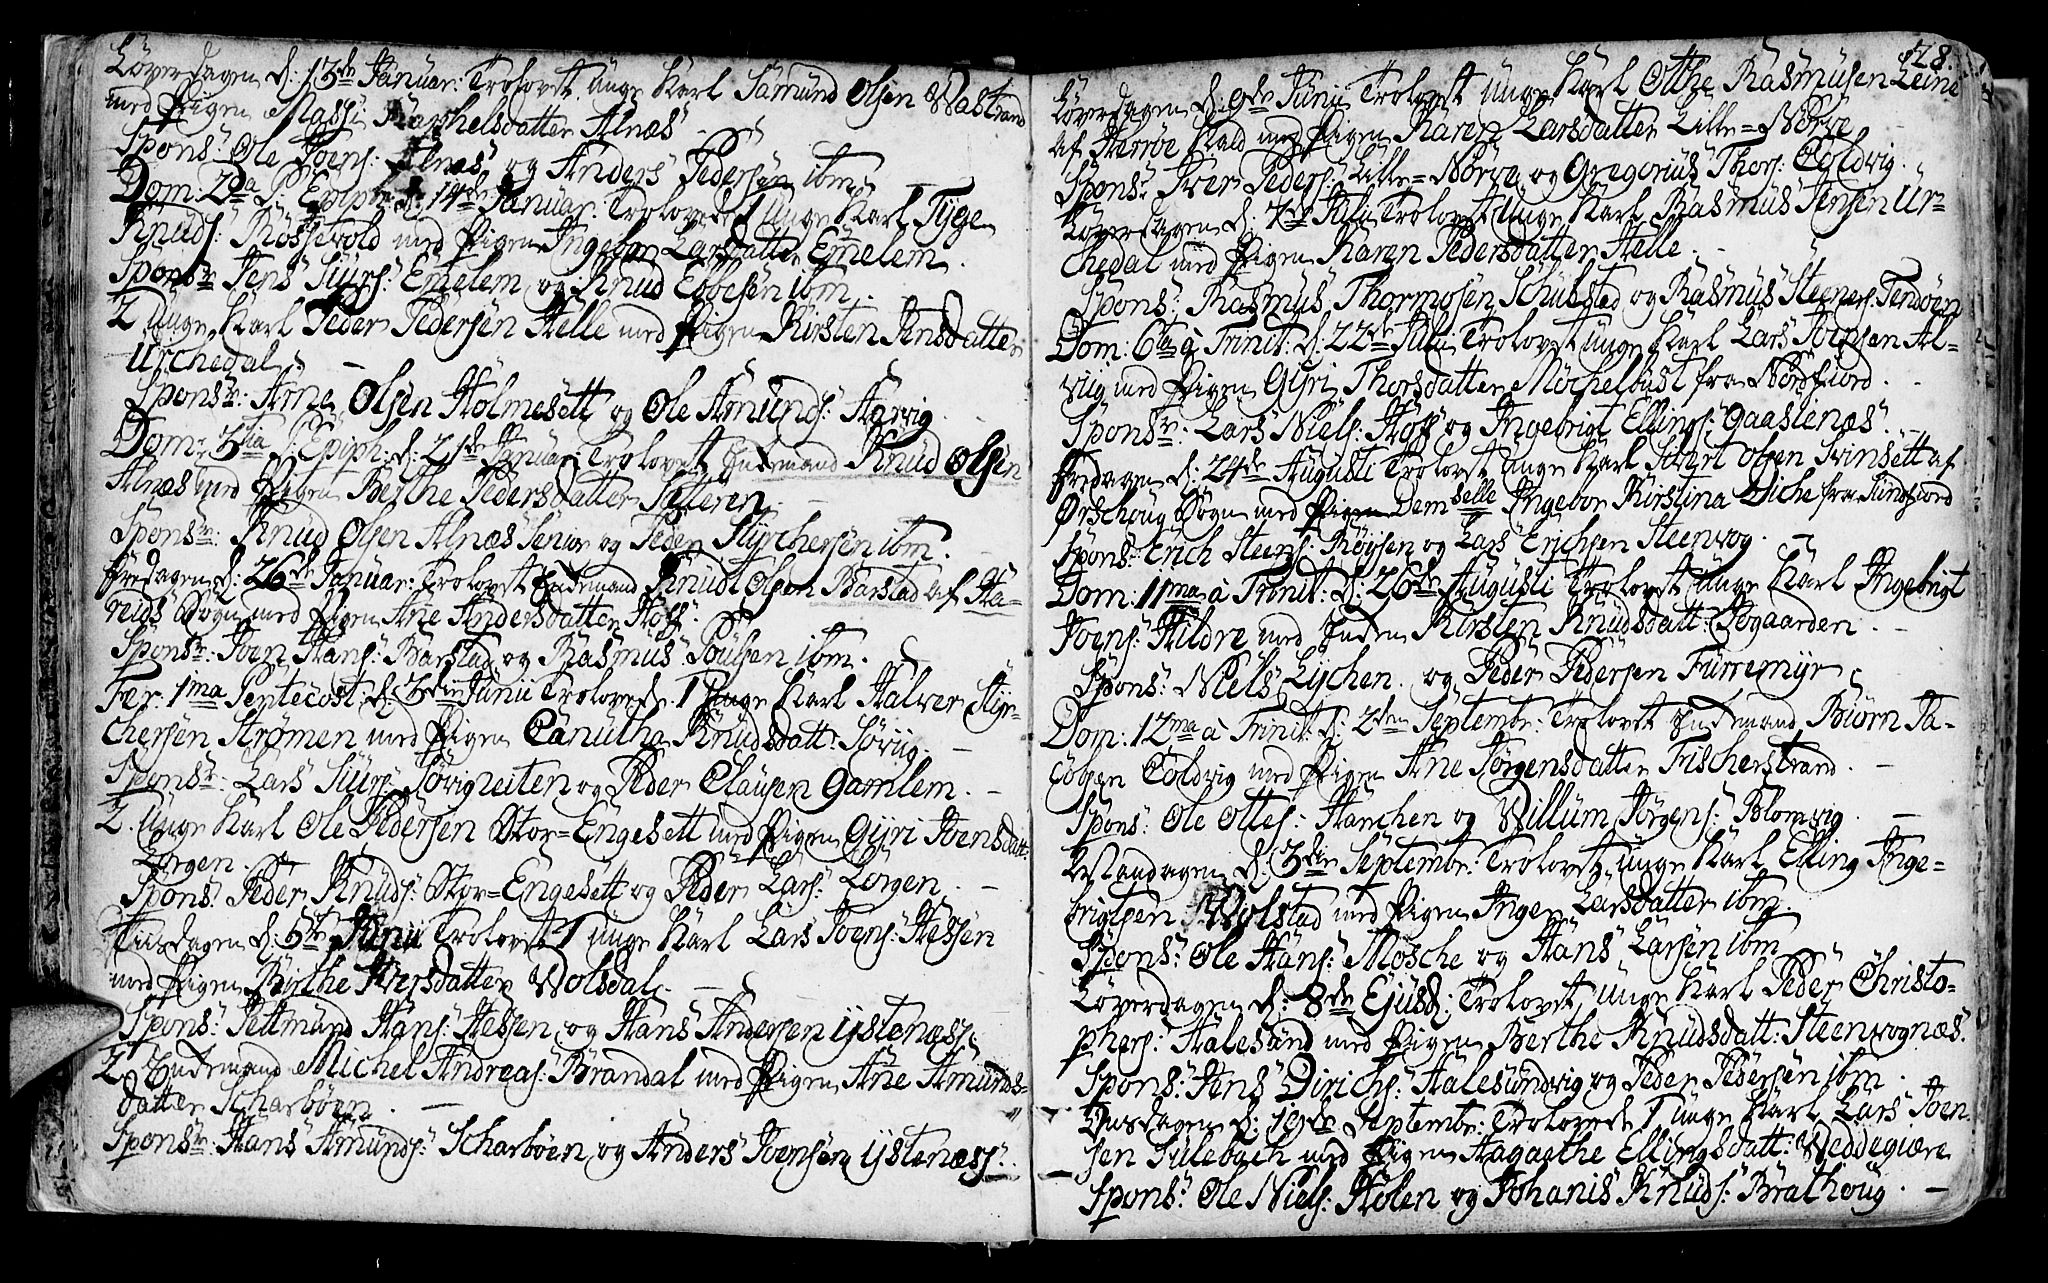 Löverdagen d: 13de Januar: Trolovet unge Karl Samund Olsen Wastrand
med Pigen Massi Raphelsdatter Alnæs
Spons: Ole Joens: Alnæs og Anders Pedersen ibm
Dom: 2da p. Epiph: d: 14de Januar: Trolovede 1 unge Karl Tyge
Knuds: Rossevold med Pigen Ingebor Larsdatter Emelem.
Sponsr: Jens Siurs: Emelem og Knud Ebbesen ibm.
2 unge Karl Peder Pedersen Helle med Pigen Kirsten Jensdatter
Urchedal.
Sponsr: Arne Olsen Holmesett og Ole Amunds: Aarvig.
Dom: 3tia p: Epiph: d: 21de Januar: Trolovet Enkemand Knud Olsen
Alnæs med Pigen Berthe Pedersdatter Sætteren.
Sponsr: Knud Olsen Alnæs Senior og Peder Styrchersen ibm.
Fredagen d: 26de Januar: Trolovet Enkemand Knud Olsen Barstad af Ha-
reids Sogn med Pigen Ane Andersdatter Hoff.
Sponsr: Joen Hans: Barstad og Rasmus Poulsen ibm.
Fer: 1ma Pentecost: d: 3die Junii Trolovede 1 unge Karl Halver Styr-
chersen Strömen med Pigen Canutha Knudsdatt: Sørvig.
Sponsr: Lars Siurs: Sørvigneiten og Peder Clausen Gamlem.
2. unge Karl Ole Pedersen Stor=Engesett med Pigen Gyri Joensdatt:
Lörgen.
Spons: Peder Knuds: Stor=Engesett og Peder Lars: Lörgen.
Tiisdagen d: 5te Junii Trolovet 1 unge Karl Lars Joens: Hessen
med Pigen Birthe Iversdatter Wolsdal.
Spons: Pettmund Hans: Hessen og Hans Andersen Ystenæss.
2 Enkemand Michel Andreas: Brandal med Pigen Ane Amunds-
datter Scharbøen.
Sponsr: Hans Amunds: Scharbøen og Anders Joensen Ystenæss.
128.
Löverdagen d: 9de Junii Trolovet unge Karl Otthe Rasmusen Leine
af Herrøe Kald med Pigen Karen Larsdatter Lille=Nørve
Spons: Iver Peders: Lille=Nørve og Gregorius Thors: Coldvig.
Löverdagen d: 7de Julii Trolovet unge Karl Rasmus Jensen Ur-
chedal med Pigen Karen Pedersdatter Helle.
Spons: Rasmus Thormosen Schulstad og Rasmus Steeners: Fendöen
Dom: 6ta à Trinit: d: 22de Julii Trolovet unge Karl Lars Joensen Al-
viig med Pigen Gyri Thorsdatter Möchelbust fra Nordfiord.
Sponsr: Lars Niels: Hoff og Ingebrigt Ellings: Gaaslenæs.
Fredagen d: 24de Augusti Trolovet unge Karl Sivert Olsen Svinsett af
Ørschoug Sogn med Pigen Demselle Ingebor Kirstina Diche fra Sundfiord
Spons: Erich Steens: Røysen og Lars Erichsen Steenvog.
Dom: 11ma à Trinit: d: 26de Augusti Trolovet unge Karl Ingebrigt
Joens: Hildre med Enken Kirsten Knudsdatt: Røgaarden
Spons: Niels Lychen og Peder Pedersen Furremyr
Dom: 12ma à Trinit: d: 2den Septembr: Trolovet Enkemand Biørn Ja-
cobsen Coldvig med Pigen Ane Jörgensdatter Fischerstrand.
Spons: Ole Ottes: Hanchen og Willum Jörgens: Blomvig.
Mandagen d: 3die Septembr: Trolovet unge Karl Elling Inge-
brigtsen Wolstad med Pigen Inger Larsdatter ibm.
Spons: Ole Hans: Mosche og Hans Larsen ibm
Löverdagen d: 8de Ejusd: Trolovet unge Karl Peder Christo-
phers: Halesund med Pigen Berthe Knudsdatt: Steenvognæs.
Spons: Jens Dirichs: Aalesundvig og Peder Pedersen ibm.
Onsdagen d: 19de Septembr: Trolovede 1 unge Karl Lars Joen-
sen Sulebach med Pigen Aagaathe Ellingsdatt: Weddegiære
Spons: Ole Niels: Holen og Johanis Knuds: Brathoug.